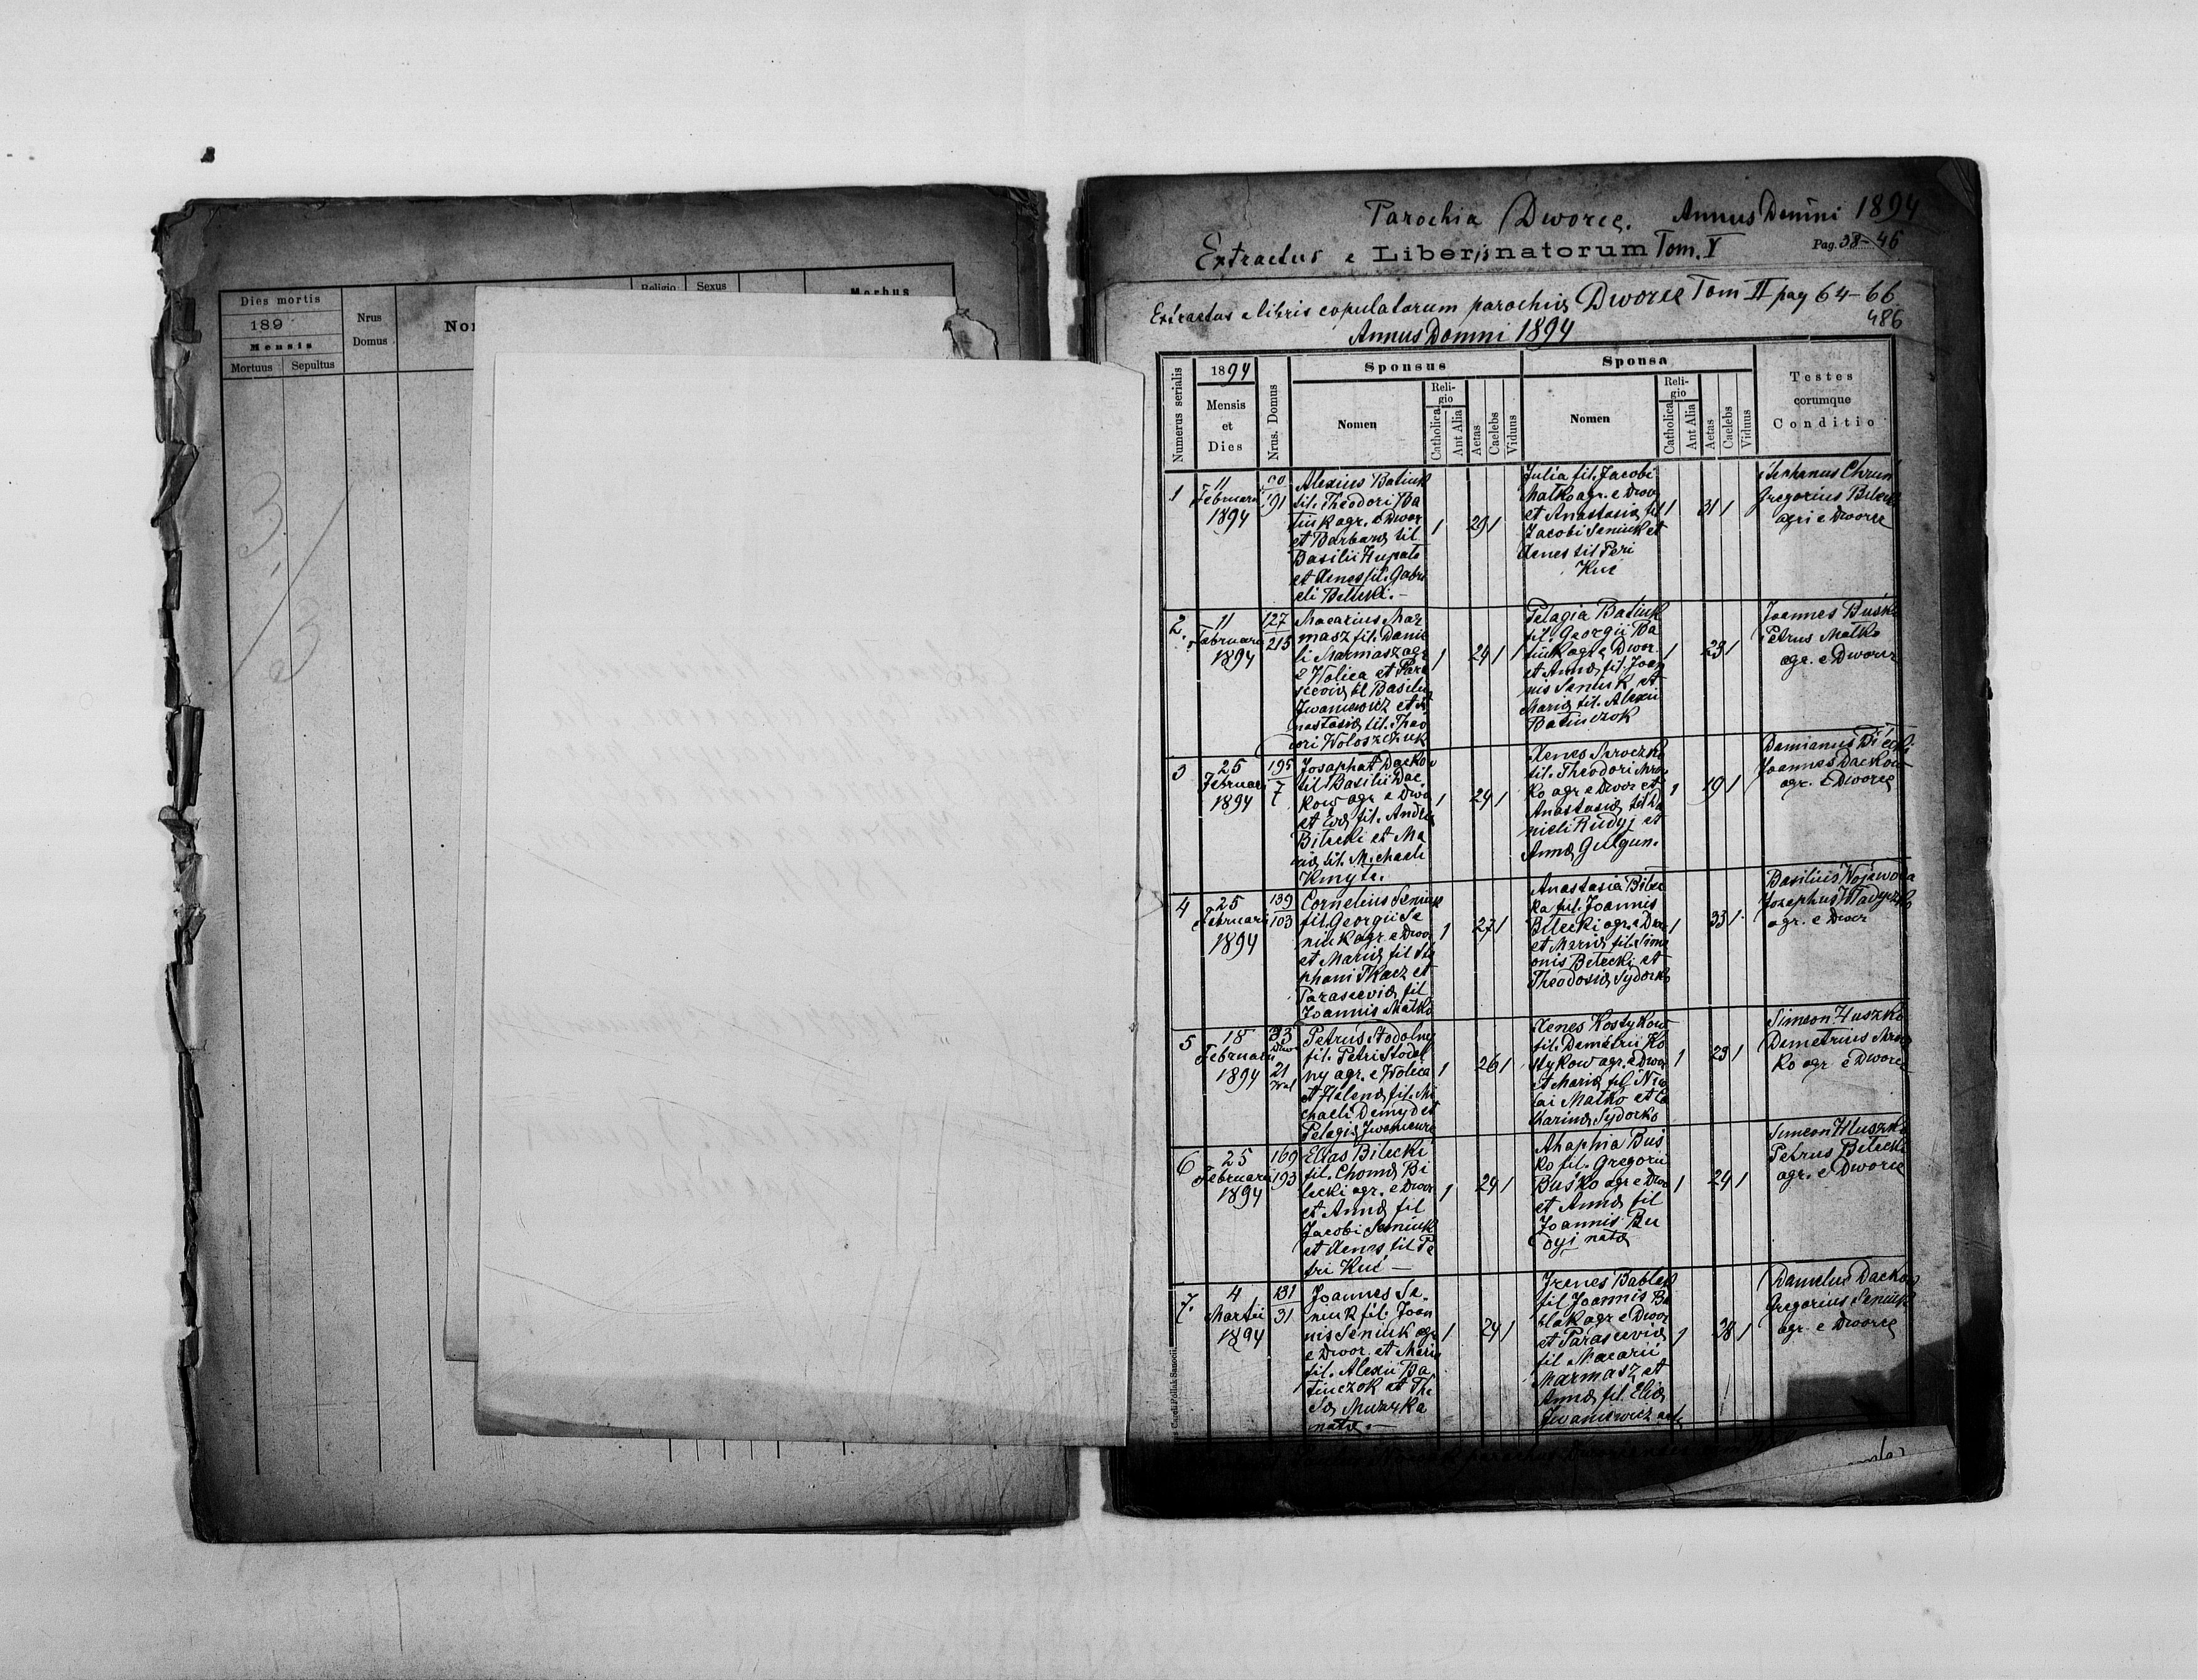 Dies mortis
189
Mensis
Mortuus Sepultus
Nrus
Domus
Religio
Sexus
Morbus
Parochia Dworce. Annus Domini 1894
Extractus e Libernatorum Tom. V Pag. 38-46
Extractus e libris copulatorum parochiæ Dworce Tom II pag 64-66
486
Annus Domni 1894
Numerus serialis
1894
Mensis
et
Dies
Nrus. Domus
Sponsus
Nomen
Reli-
gio
Catholica
Aut Alia
Aetas
Caelebs
Viduus
Sponsa
Nomen
Reli-
gio
Catholica
Aut Alia
Aetas
Caelebs
Viduus
Testes
eorumque
Conditio
1
11
Februarii
1894
Alexius Batiuk
fil. Theodori Ba
tiuk agr. e Dwor
et Barbaræ fil
Basilii
et Xenes fil. Gabri
eli Bilecki.-
1 29 1
Julia fil. Jacobi
Matko agr. e Dwor
et Anastasiæ fil
Jacobi Seniuk et
Xenes fil Petri
Kuc
1 31 1
Stephanus
Gregorius Bilecki
agri e Dworce
2.
11
Februarii
1894
127
215
Macarius Mar
masz fil. Danie
li Marmasz agr
e Wolica et Para
sceviæ fil Basilii
Iwaniewicz et A
nastasiæ fil. Theo
dori Woloszczuk
1 24 1
Pelagia Batiuk
fil. Georgii Ba
tiuk agr e Dwor
et Annæ fil. Joan
nis Seniuk et
Mariæ fil. Alexii
Batiuczok
1 23 1
Joannes Buśko
Petrus Matko
agr. e Dworce
3
25
Februarii
1894
195
7
Josaphat Dackow
fil Basilii Dac
kow agr e Dwo
et Evæ fil. Andreæ
Bilecki et Ma
riæ fil. Michaeli
Kmyta.
1 24 1
Xenes Mroczko
fil. Theodori Mrocz
ko agr e Dwor et
Anastasiæ fil Da
nieli Rudyj et
Annæ
1 19 1
Damianus
Joannes Dackow
agr. e Dworce
4
25
Februarii
1894
139
103
Cornelius Seniuk
fil. Georgii Se
niuk agr. e Dwor
et Mariæ fil Ste
phani Tkacz et
Parasceviæ fil
Joannis Matko
1 27 1
Anastasia Bilec
ka fil. Joannis
Bilecki agr. e Dwor
et Mariæ fil. Sime
onis Bilecki et
Theodosiæ Sydorko
1 33 1
Basilius Wojewoda
Josephus
agr. e Dwor
5
18
Februarii
1894
33
Dwor
21
Wol
Petrus Stodolny
fil. Petri Stodol
ny agr. e Wolica
et Helenæ fil. Mi
chaeli Demyd et
Pelagiæ Iwaniewicz
1 26 1
Xenes Kostykow
fil. Demetrii Ko
stykow agr. e Dwor
et Mariæ fil Nico
lai Matko et Ca
tharinæ Sydorko
1 23 1
Simeon Huszko
Demetrius Mrocz
ko agr e Dworce
6
25
Februarii
1894
169
193
Elias Bilecki
fil. Chomæ Bi
lecki agr. e Dwor
et Annæ fil
Jacobi Seniuk
et Xenes fil Pe
tri Kuc —
1 24 1
Ahaphia Buś
ko fil. Gregorii
Buśko agr e Dwor
et Annæ fil
Joannis Ru
dyj natæ
1 24 1
Simeon Huszko
Petrus Bilecki
agr. e Dworce
7.
4
Martii
1894
131
31
Joannes Se
niuk fil. Joan
nis Seniuk agr
e Dwor. et Mariæ
fil. Alexii Ba
tiuczok et The
natæ.-
1 24 1
Irenes Bablak
fil Joannis Ba
blak agr e Dwor
et Parasceviæ
fil Macarii
Marmasz et
Annæ fil. Eliæ
Iwaniewicz
1 38 1
Danielus Dackow
Gregorius Seniuk
agr. e Dworce